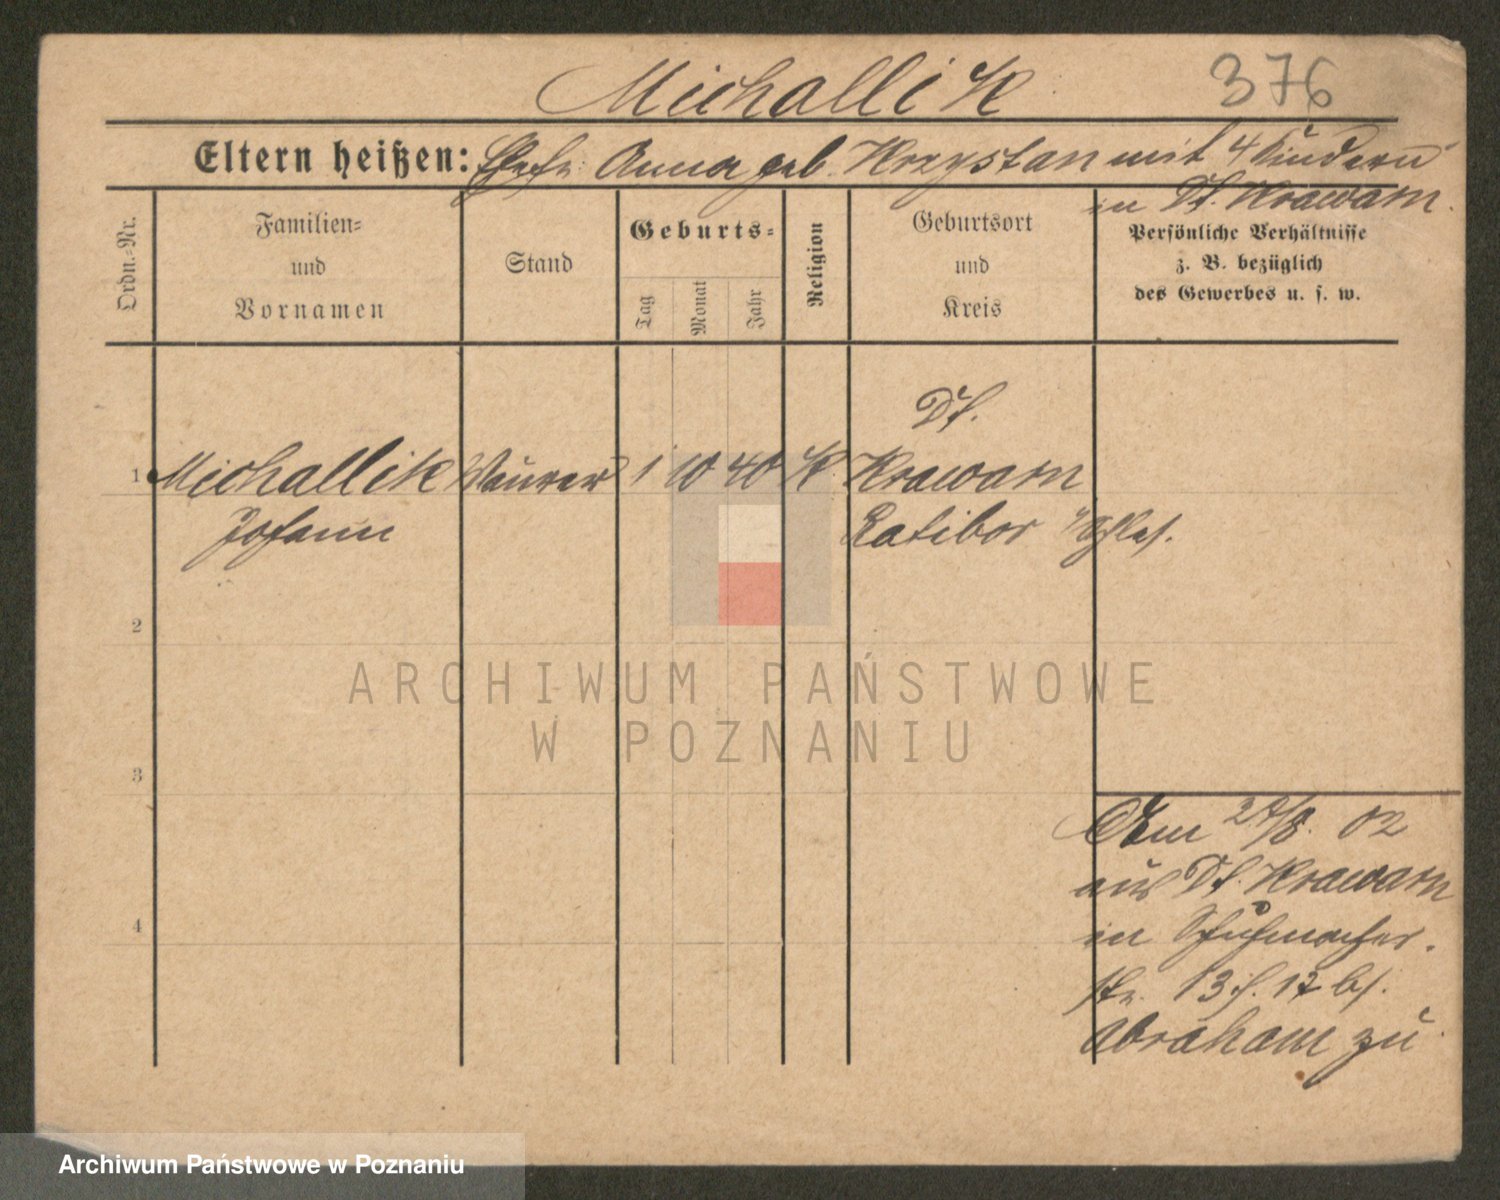 Michallik
376
Eltern heißen: Ehefr. Anna geb. Krzystan mit 4 Kindern
in Dt. Krawarn.
Ordn.-Nr.
Familien-
und
Vornamen
Stand
Geburts-
Tag
Monat
Jahr
Religion
Geburtsort
und
Kreis
Persönliche Verhältnisse
z. B. bezüglich
des Gewerbes u. s. w.
Dt.
1 Michallik Maurer 1 10 40 K. Krawarn
Johann Ratibor
2
3
4
ARCHIWUM PAŃSTWOWE
W POZNANIU
Am 27/8. 02
aus Dt. Krawarn
in Schuhmacher-
str. 13. 17 bei
Abraham zu
Archiwum Państwowe w Poznaniu